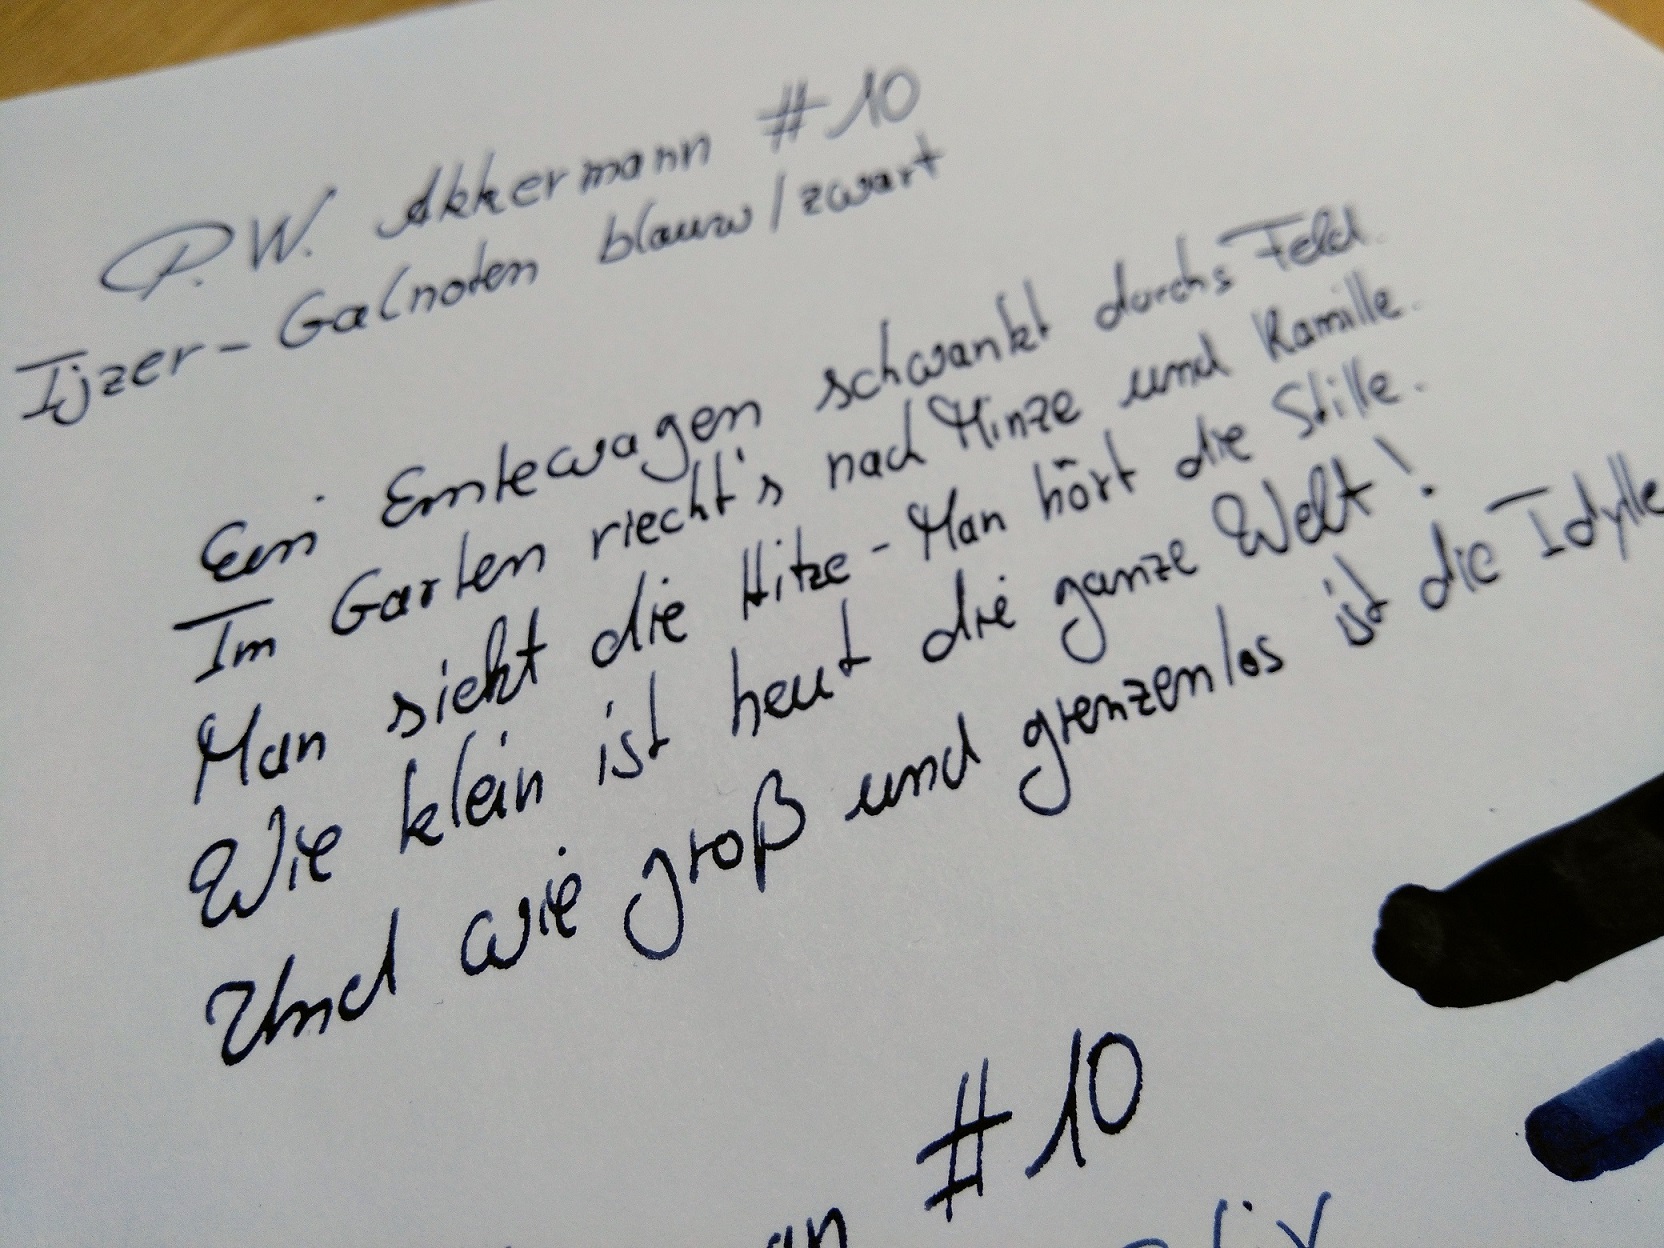 P.W. Akkermann #10
Ijzer-Galnoten blauw/zwart
Ein Erntewagen schwankt durchs Feld.
Im Garten riecht's nach Minze und Kamille.
Man sieht die Hitze - Man hört die Stille.
Wie klein ist heut die ganze Welt!
Und wie groß und grenzenlos ist die Idylle
#10